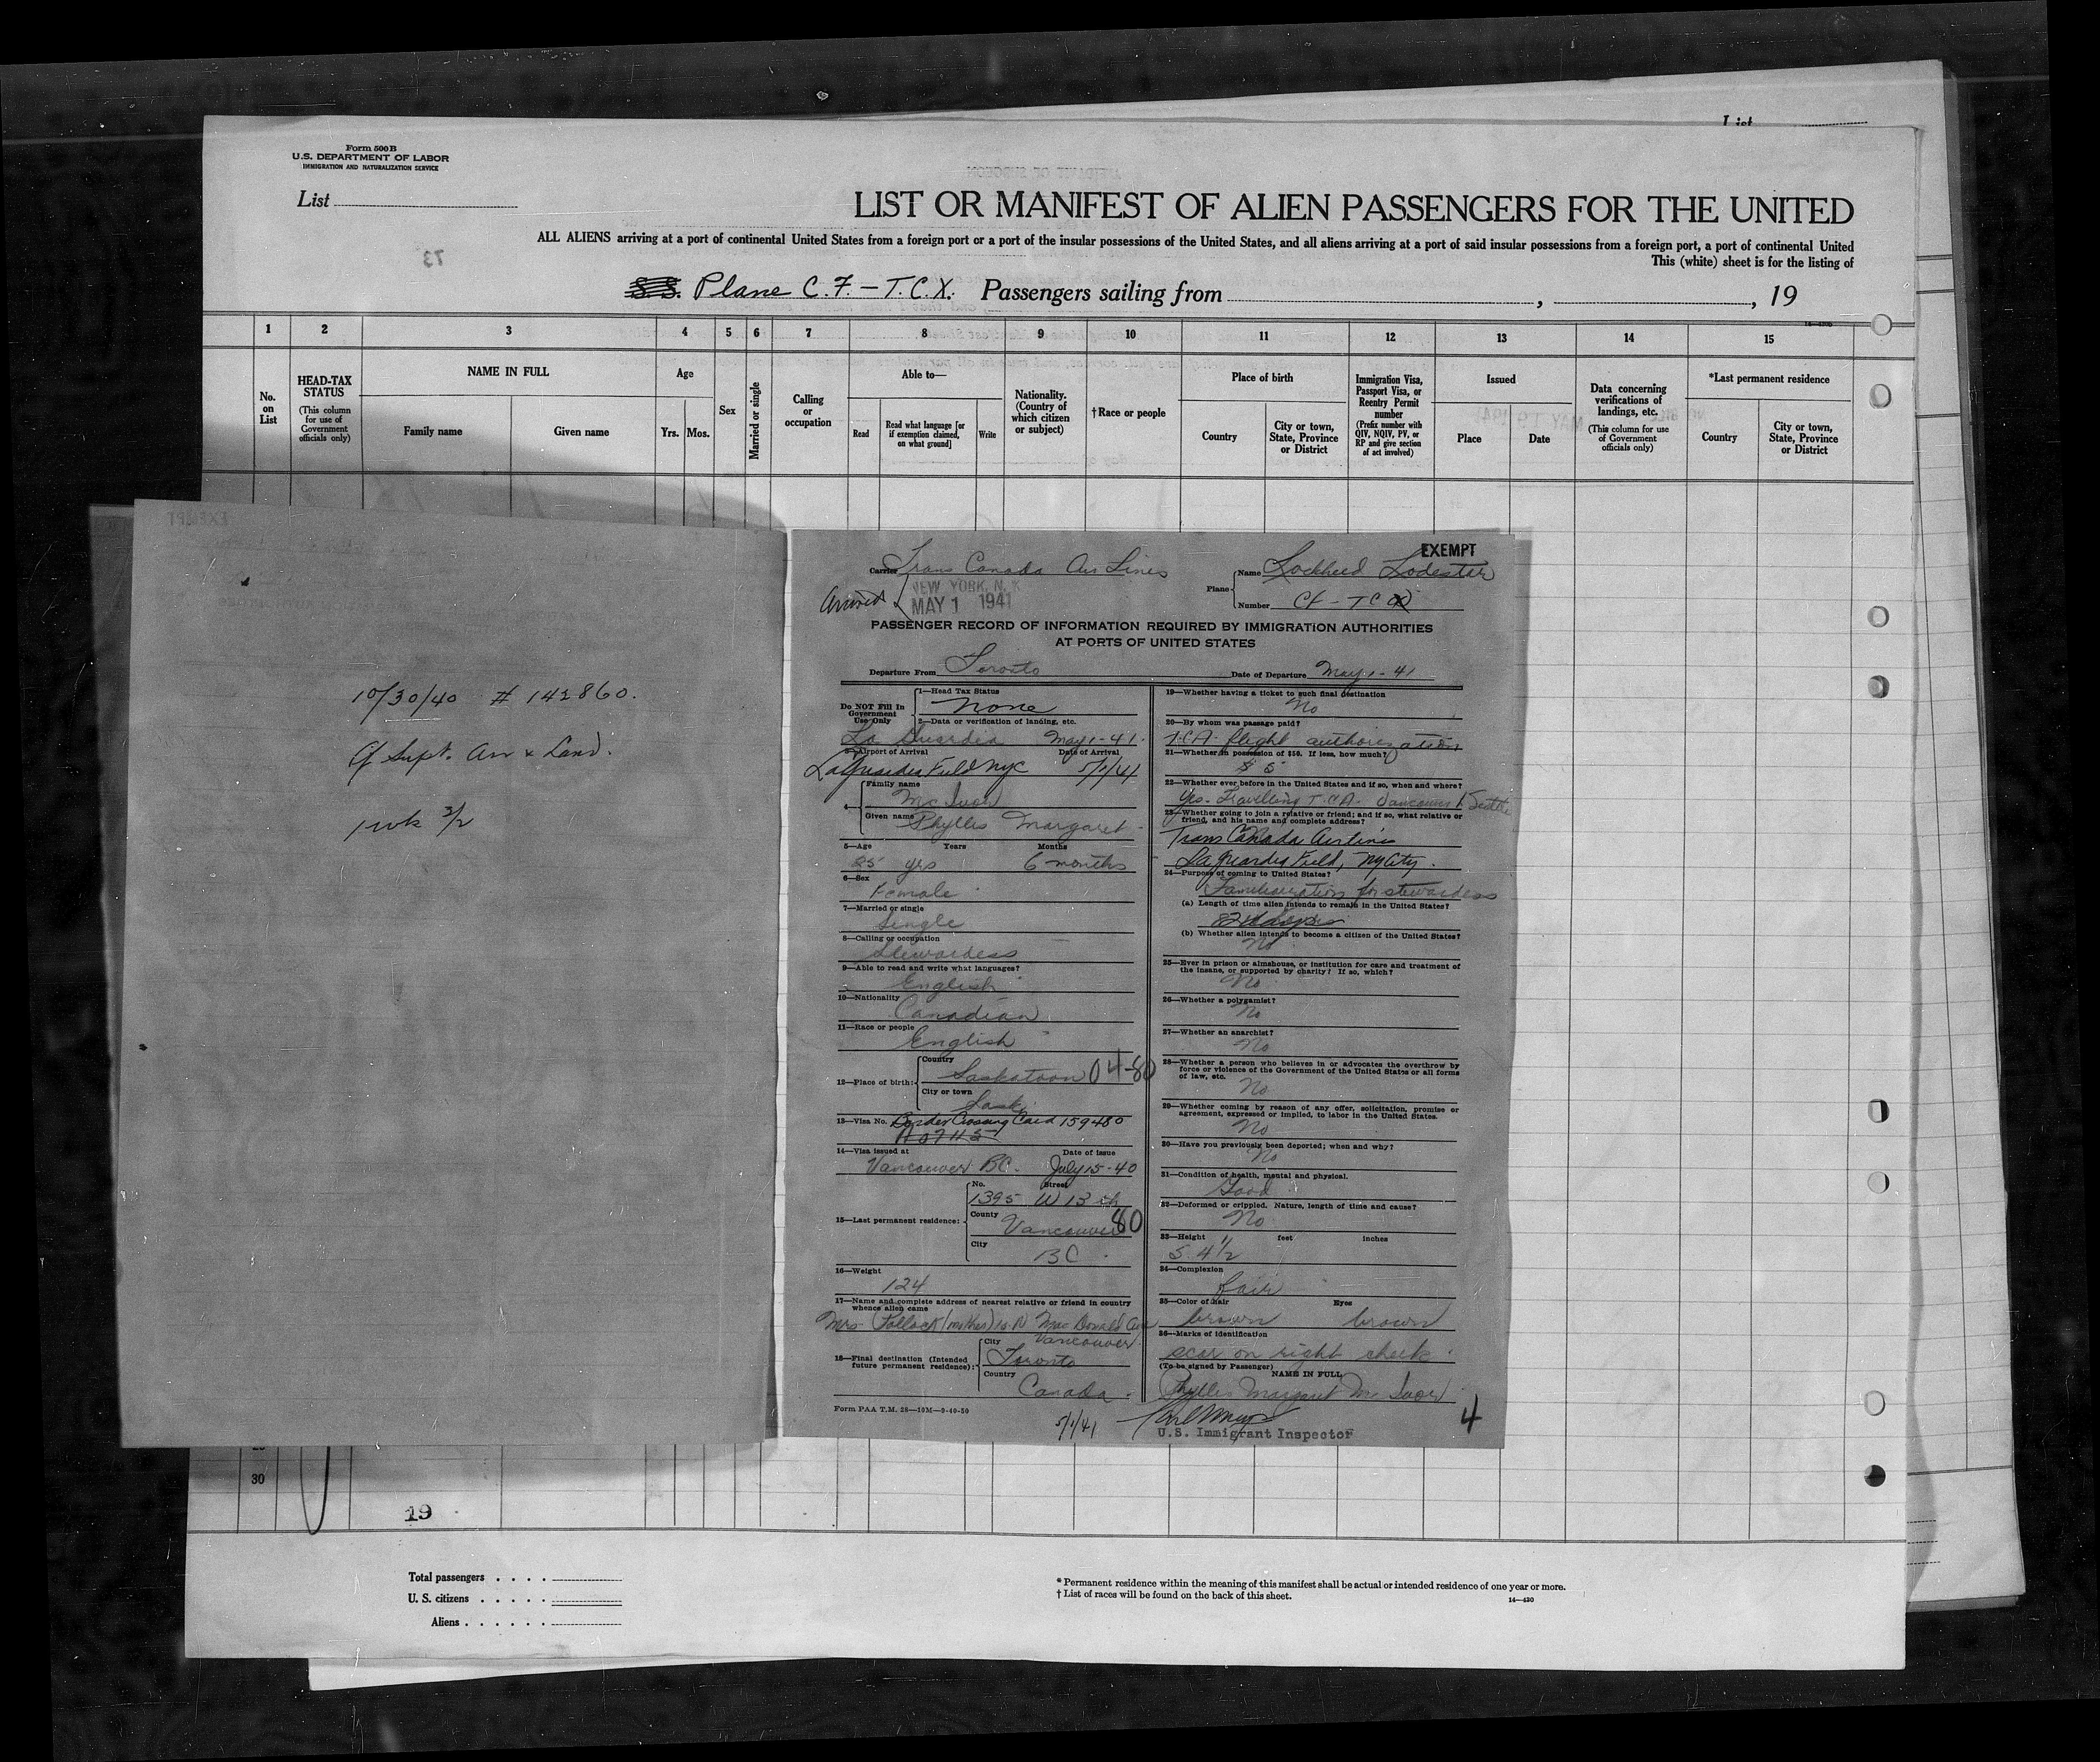 List
Form 500B
U.S. DEPARTMENT OF LABOR
IMMIGRATION AND NATURALIZATION SERVICE
List
LIST OR MANIFEST OF ALIEN PASSENGERS FOR THE UNITED
ALL ALIENS arriving at a port of continental United States from a foreign port or a port of the insular possessions of the United States, and all aliens arriving at a port of said insular possessions from a foreign port, a port of continental United
This (white) sheet is for the listing of
73
S.S. Plane C.F.-T.C.X. Passengers sailing from , , 19
1 2 3 4 5 6 7 8 9 10 11 12 13 14 15
No. on List
HEAD-TAX STATUS
(This column for use of Government officials only)
NAME IN FULL
Family name Given name
Age
Yrs. Mos.
Sex
Married or single
Calling or occupation
Able to—
Read
Read what language [or if exemption claimed, on what ground]
Write
Nationality. (Country of which citizen or subject)
†Race or people
Place of birth
Country
City or town, State, Province or District
Immigration Visa, Passport Visa, or Reentry Permit number
(Prefix number with QIV, NQIV, PV, or RP and give section of act involved)
Issued
Place Date
Data concerning verifications of landings, etc.
(This column for use of Government officials only)
*Last permanent residence
Country
City or town, State, Province or District
EXEMPT
10/30/40 # 142860.
Of Supt. Air & Land.
1 wk 3/2
EXEMPT
Carrier Trans Canada Air Lines
Plane Name Lockheed Lodestar
Number CF-TCX
Arrived NEW YORK, N.Y.
MAY 1 1941
PASSENGER RECORD OF INFORMATION REQUIRED BY IMMIGRATION AUTHORITIES
AT PORTS OF UNITED STATES
Departure From Toronto Date of Departure May 1-41
Do NOT Fill In Government Use Only
1—Head Tax Status
None
2—Data or verification of landing, etc.
La Guardia May 1-41.
3—Airport of Arrival Date of Arrival
La Guardia Field NYC 5/1/41
4—
Family name
McIvor
Given name Phyllis Margaret
5—Age Years Months
25 yrs 6 months
6—Sex
Female
7—Married or single
Single
8—Calling or occupation
Stewardess
9—Able to read and write what languages?
English
10—Nationality
Canadian
11—Race or people
English
12—Place of birth:
Country
Saskatoon 04-80
City or town
Sask.
13—Visa No. Border Crossing Card 159480
14—Visa issued at Date of issue
Vancouver BC. July 15-40
15—Last permanent residence:
No. Street
1395 W 13th
County
Vancouver 80
City
BC
16—Weight
124
17—Name and complete address of nearest relative or friend in country whence alien came
Mrs. Pollock (mother) MacDonald Ave
Vancouver
18—Final destination (Intended future permanent residence):
City
Toronto
Country
Canada
Form PAA T.M. 28—10M—9-40-50
19—Whether having a ticket to such final destination
No
20—By whom was passage paid?
T.C.A. flight authorization
21—Whether in possession of $50. If less, how much?
$5
22—Whether ever before in the United States and if so, when and where?
Yes - Travelling T.C.A. Vancouver to Seattle
23—Whether going to join a relative or friend; and if so, what relative or friend, and his name and complete address?
Trans Canada Airlines
La Guardia Field, NY City.
24—Purpose of coming to United States?
Familiarization for stewardess
(a) Length of time alien intends to remain in the United States?
(b) Whether alien intends to become a citizen of the United States?
No
25—Ever in prison or almshouse, or institution for care and treatment of the insane, or supported by charity? If so, which?
No
26—Whether a polygamist?
No
27—Whether an anarchist?
No
28—Whether a person who believes in or advocates the overthrow by force or violence of the Government of the United States or all forms of law, etc.
No
29—Whether coming by reason of any offer, solicitation, promise or agreement, expressed or implied, to labor in the United States.
No
30—Have you previously been deported; when and why?
No
31—Condition of health, mental and physical.
Good
32—Deformed or crippled. Nature, length of time and cause?
No
33—Height feet inches
5 4 1/2
34—Complexion
fair
35—Color of hair Eyes
brown brown
36—Marks of identification
scar on right cheek
(To be signed by Passenger) NAME IN FULL
Phyllis Margaret McIvor
5/1/41
U.S. Immigrant Inspector
4
30
19
Total passengers
U. S. citizens
Aliens
* Permanent residence within the meaning of this manifest shall be actual or intended residence of one year or more.
† List of races will be found on the back of this sheet.
14—430